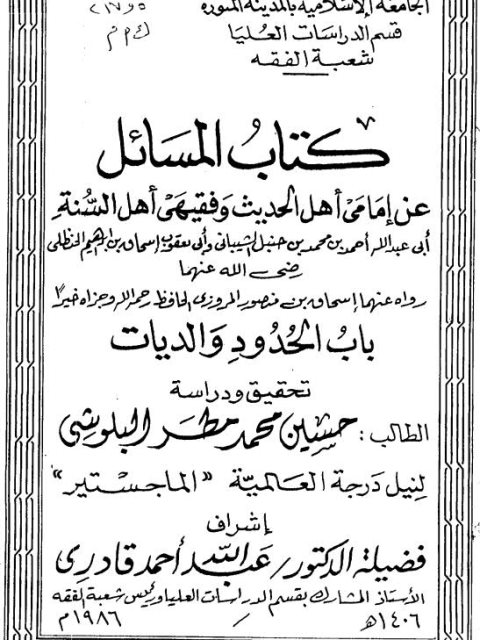 الجامعة الإسلامية بالمدينة المنورة
قسم الدراسات العليا
شعبة الفقه
كتاب المسائل
عن إمامي أهل الحديث وفقيهي أهل السنة
أبي عبد الله أحمد بن محمد بن حنبل الشيباني وأبي يعقوب إسحاق بن إبراهيم الحنظلي
رضي الله عنهما
رواه عنهما إسحاق بن منصور المروزي الحافظ رحمه الله وجزاه خيرًا
باب الحدود والديات
تحقيق ودراسة
الطالب: حسين محمد مطر البلوشي
لنيل درجة العالمية "الماجستير"
إشراف
فضيلة الدكتور/ عبد الله أحمد قادري
الأستاذ المشارك بقسم الدراسات العليا ورئيس شعبة الفقه
١٤٠٦هـ / ١٩٨٦م